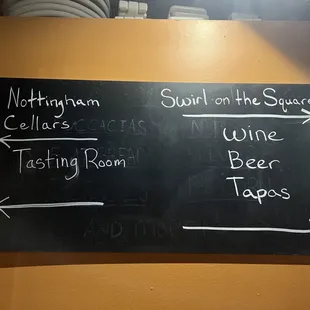 Nottingham
Cellars
Tasting Room
Swirl on the Square
Wine
Beer
Tapas